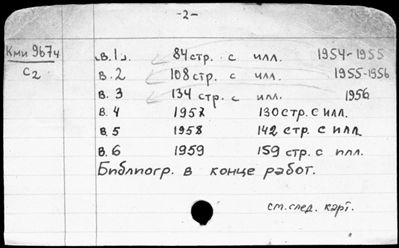 -2-
Кми 967ч
С2
в.1 84 стр. с илл. 1954-1955
в.2 108 стр. с илл. 1955-1956
в.3 134 стр. с илл. 1956
в.4 1957 130 стр. с илл.
в.5 1958 142 стр. с илл.
в.6 1959 159 стр. с илл.
Библиогр. в конце работ.
см.след. карт.